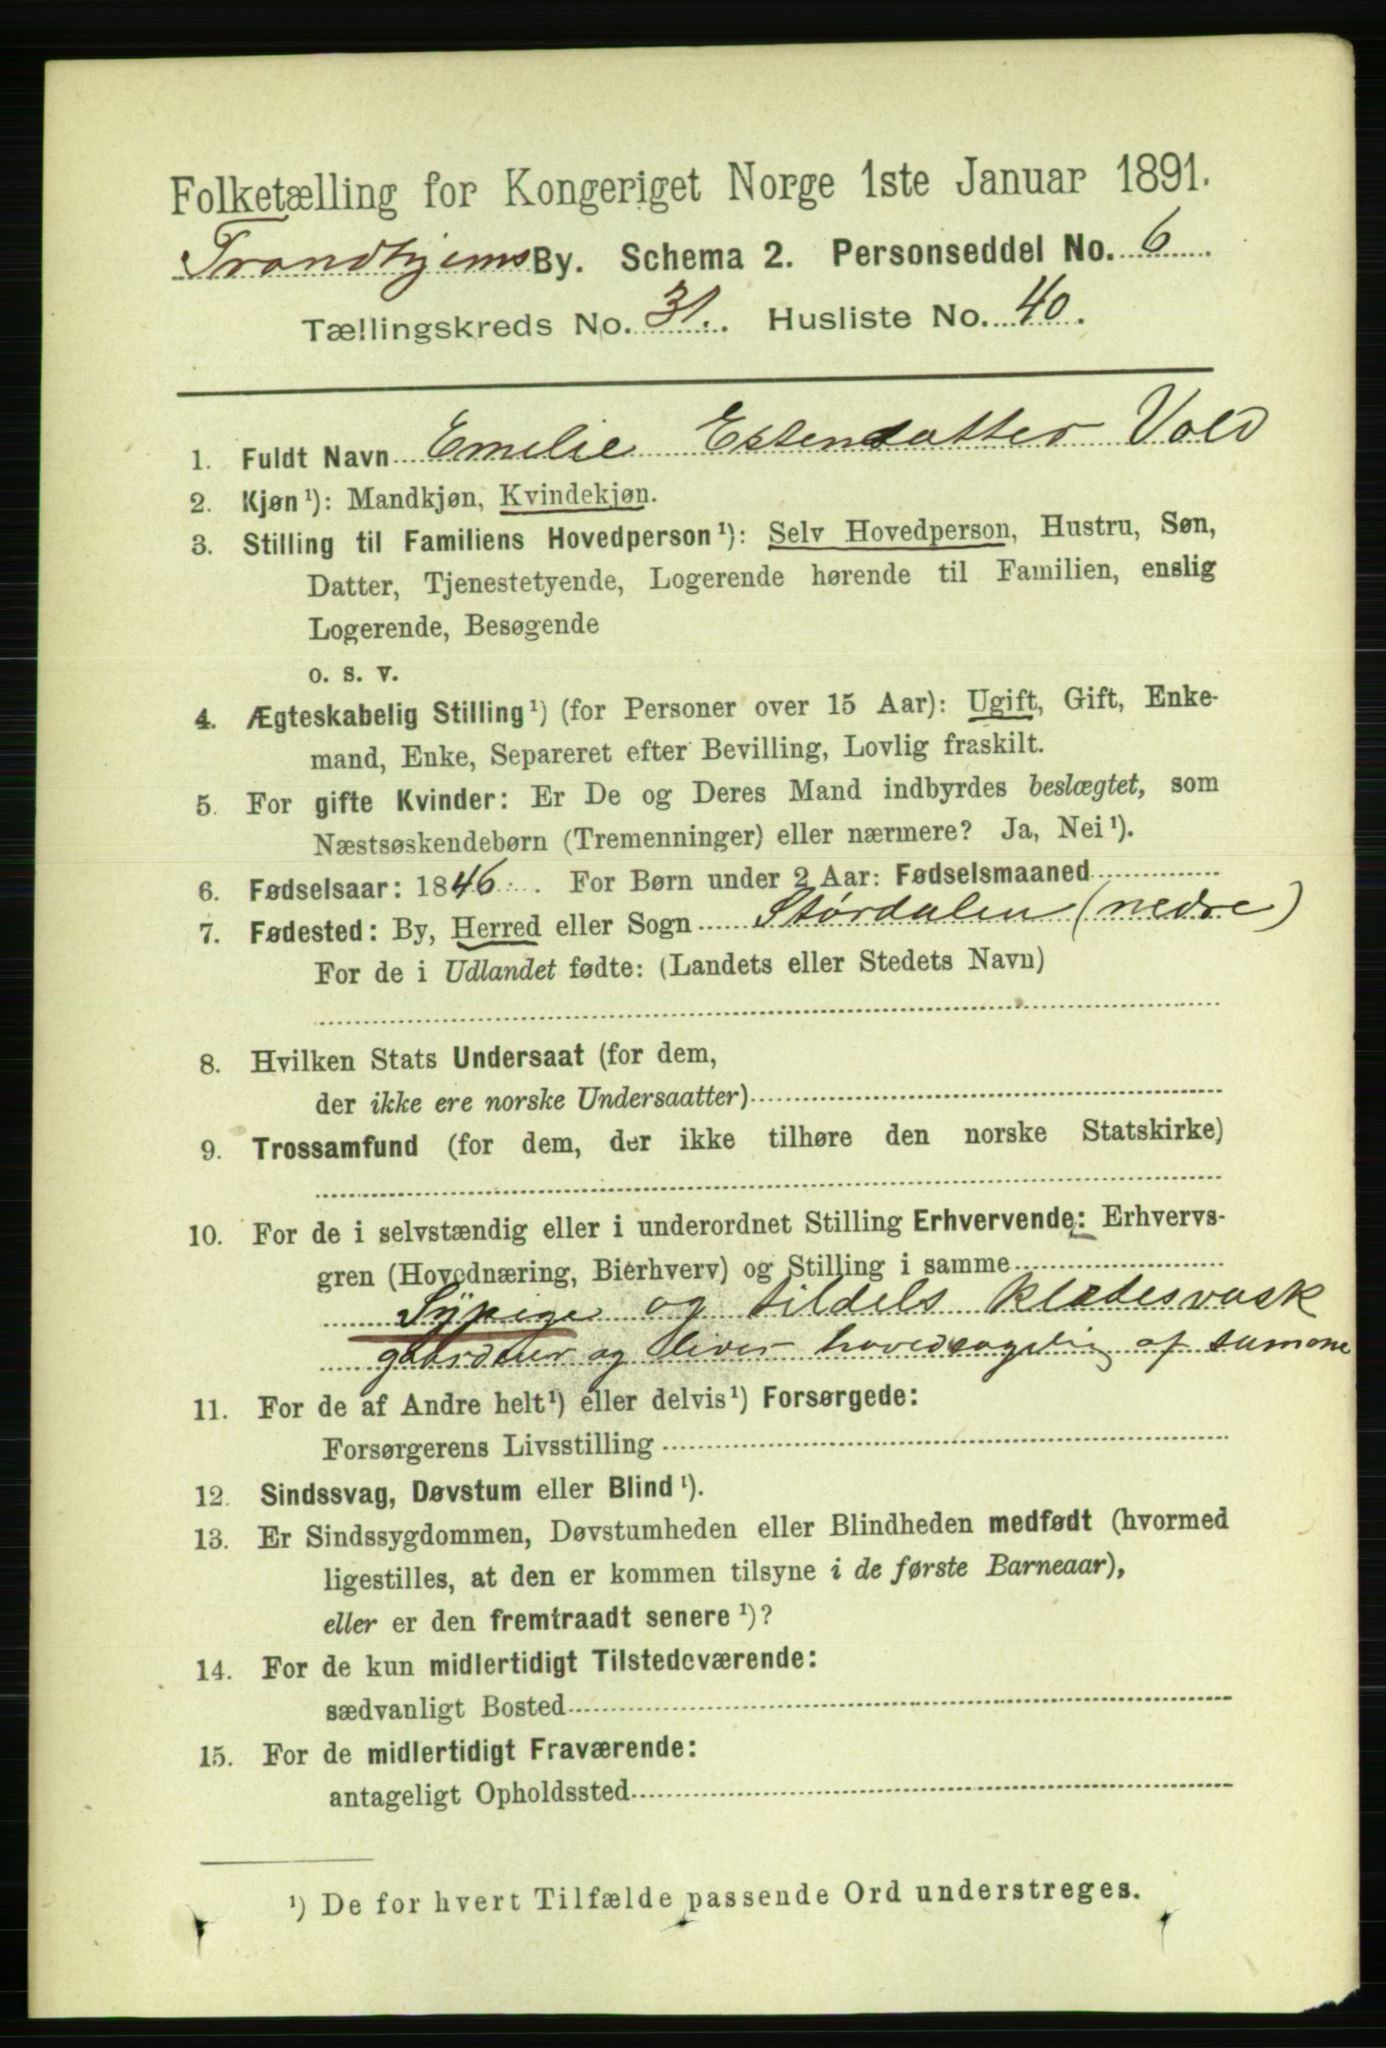 Folketælling for Kongeriget Norge 1ste Januar 1891.
Trondhjems By. Schema 2. Personseddel No. 6
Tællingskreds No. 31. Husliste No. 40.
1. Fuldt Navn Emelie Estensdatter Vold
2. Kjøn¹): Mandkjøn, Kvindekjøn.
3. Stilling til Familiens Hovedperson¹): Selv Hovedperson, Hustru, Søn,
Datter, Tjenestetyende, Logerende hørende til Familien, enslig
Logerende, Besøgende
o. s. v.
4. Ægteskabelig Stilling¹) (for Personer over 15 Aar): Ugift, Gift, Enke-
mand, Enke, Separeret efter Bevilling, Lovlig fraskilt.
5. For gifte Kvinder: Er De og Deres Mand indbyrdes beslægtet, som
Næstsøskendebørn (Tremenninger) eller nærmere? Ja, Nei¹).
6. Fødselsaar: 1846. For Børn under 2 Aar: Fødselsmaaned
7. Fødested: By, Herred eller Sogn Størdalen (nedre)
For de i Udlandet fødte: (Landets eller Stedets Navn)
8. Hvilken Stats Undersaat (for dem,
der ikke ere norske Undersaatter)
9. Trossamfund (for dem, der ikke tilhøre den norske Statskirke)
10. For de i selvstændig eller i underordnet Stilling Erhvervende: Erhvervs-
gren (Hovednæring, Bierhverv) og Stilling i samme
Sypige og tildels klædesvask
og lever hovedsagelig af samme
11. For de af Andre helt¹) eller delvis¹) Forsørgede:
Forsørgerens Livsstilling
12. Sindssvag, Døvstum eller Blind¹).
13. Er Sindssygdommen, Døvstumheden eller Blindheden medfødt (hvormed
ligestilles, at den er kommen tilsyne i de første Barneaar),
eller er den fremtraadt senere¹)?
14. For de kun midlertidigt Tilstedeværende:
sædvanligt Bosted
15. For de midlertidigt Fraværende:
antageligt Opholdssted
¹) De for hvert Tilfælde passende Ord understreges.